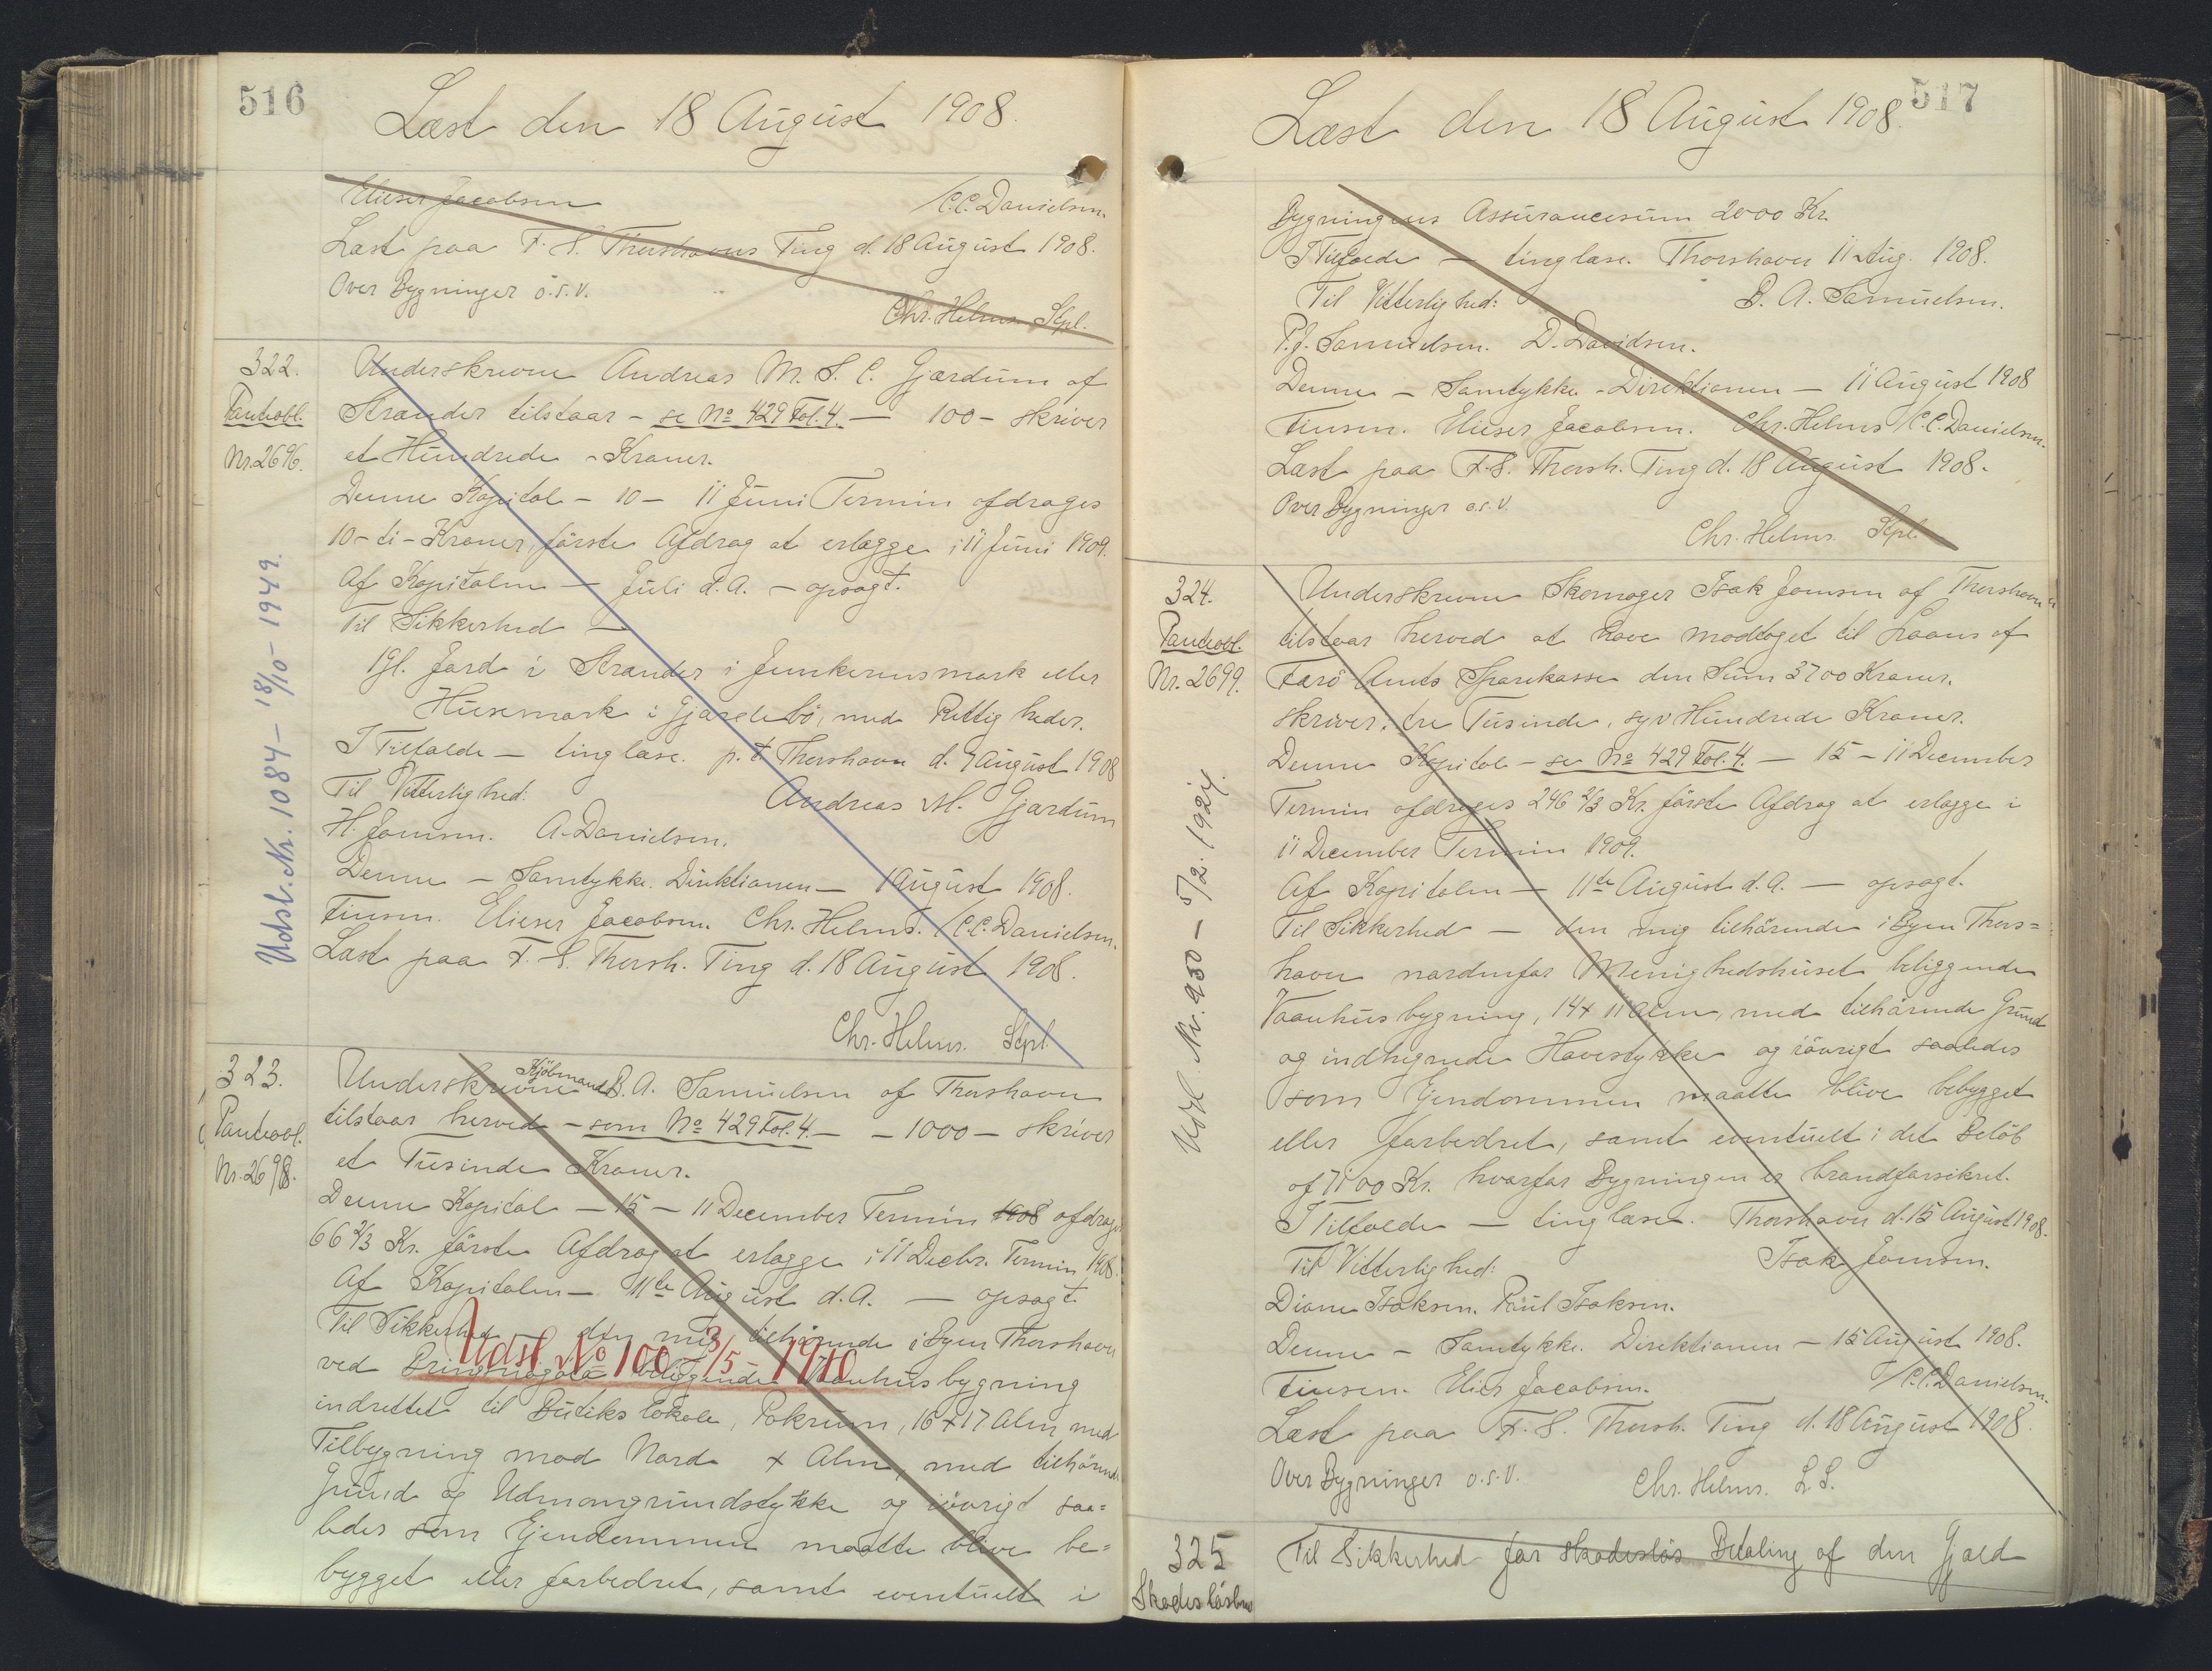 516
Læst den 18 August 1908.
Elieser Jacobsen /C.C. Danielsen.
Læst paa F. S. Thorshavns Ting d. 18 August 1908.
Over Bygninger o.s.v.
Chr. Helms. Skpl.
322.
Panteobl.
Nr. 2696.
Underskrevne Andreas M. S. C. Gjærdum af
Strænder tilstaar - se No 429 Fol. 4. - 100 - skriver
et Hundrede - Kroner.
Denne Kapital - 10 - 11 Juni Termin afdrages
10 - ti - Kroner, første Afdrag at erlægge i 11 Juni 1909.
Af Kapitalen - Juli d. A. - opsagt.
Til Sikkerhed -
1 gl. Jord i Strænder i Junkerensmark eller
Husemark i Gjærdebø, med Rettigheder.
I Tilfælde - tinglæse. p.t. Thorshavn d. 1 August 1908
Til Vitterlighed:
Andreas M. Gjærdum
H. Joensen. A. Danielsen.
Denne - Samtykke. Direktionen - 1 August 1908.
Finsen. Elieser Jacobsen. Chr. Helms. /C.C. Danielsen.
Læst paa F. S. Thorsh. Ting d. 18 August 1908.
Chr. Helms. Skpl.
Udsl. Nr. 1084 - 18/10 - 1949.
323.
Panteobl.
Nr. 2698.
Underskrevne Kjøbmand B. A. Samuelsen af Thorshavn
tilstaar herved - som No 429 Fol. 4. - - 1000 - skriver
et Tusinde Kroner.
Denne Kapital - 15 - 11 December Termin 1908 afdrages
66 2/3 Kr. første Afdrag at erlægge i 11 Decbr. Termin 1908.
Af Kapitalen - 11te August d. A. - opsagt.
Til Sikkerhed - den mig tilhørende i Byen Thorshavn
Udsl. No 100 - 3/5 - 1910
ved beliggende Vaanhusbygning
indrettet til Butikslokale, Pakrum, 16 x 17 Alen med
Tilbygning mod Nord x Alen, med tilhørende
Grund og Udmongrundstykke og iøvrigt saa=
ledes som Ejendommen maatte blive be=
bygget eller forbedret, samt eventuelt i
517
Læst den 18 August 1908.
Bygningens Assurancesum 2000 Kr.
I Tilfælde - tinglæse. Thorshavn 11 Aug. 1908.
Til Vitterlighed: B. A. Samuelsen.
P. J. Samuelsen. D. Davidsen.
Denne - Samtykke - Direktionen - 11 August 1908
Finsen. Elieser Jacobsen. Chr. Helms /C.C. Danielsen.
Læst paa F. S. Thorsh. Ting d. 18 August 1908.
Over Bygninger o.s.v.
Chr. Helms. Skpl.
324.
Panteobl.
Nr. 2699.
Underskrevne Skomager Isak Joensen af Thorshavn
tilstaar herved at have modtaget til Laans af
Færø Amts Sparekasse den Sum 3700 Kroner.
skriver: tre Tusinde, syv Hundrede Kroner.
Denne Kapital - se No 429 Fol. 4. - 15 - 11 December
Termin afdrages 246 2/3 Kr. første Afdrag at erlægge i
11 December Termin 1909.
Af Kapitalen - 11te August d. A. - opsagt.
Til Sikkerhed - den mig tilhørende i Byen Thors=
havn nordenfor Menighedshuset beliggende
Vaanhusbygning, 14 x 11 Alen, med tilhørende Grund
og indhegnede Havestykke og iøvrigt saaledes
som Ejendommen maatte blive bebygget
eller forbedret, samt eventuelt i det Beløb
af Kr. hvorfor Bygningen er brandforsikret.
I Tilfælde - tinglæse. Thorshavn d. 15 August 1908.
Til Vitterlighed: Isak Joensen.
Diane Isaksen. Paul Isaksen.
Denne - Samtykke. Direktionen - 15 August 1908.
Finsen. Elies Jacobsen. /C.C. Danielsen.
Læst paa F. S. Thorsh. Ting d. 18 August 1908.
Over Bygninger o.s.v. Chr. Helms. L. S.
Udsl. Nr. 950 - 5/2. 1924.
325
Skadesløsbrev
Til Sikkerhed for skadesløs Betaling af den Gjæld